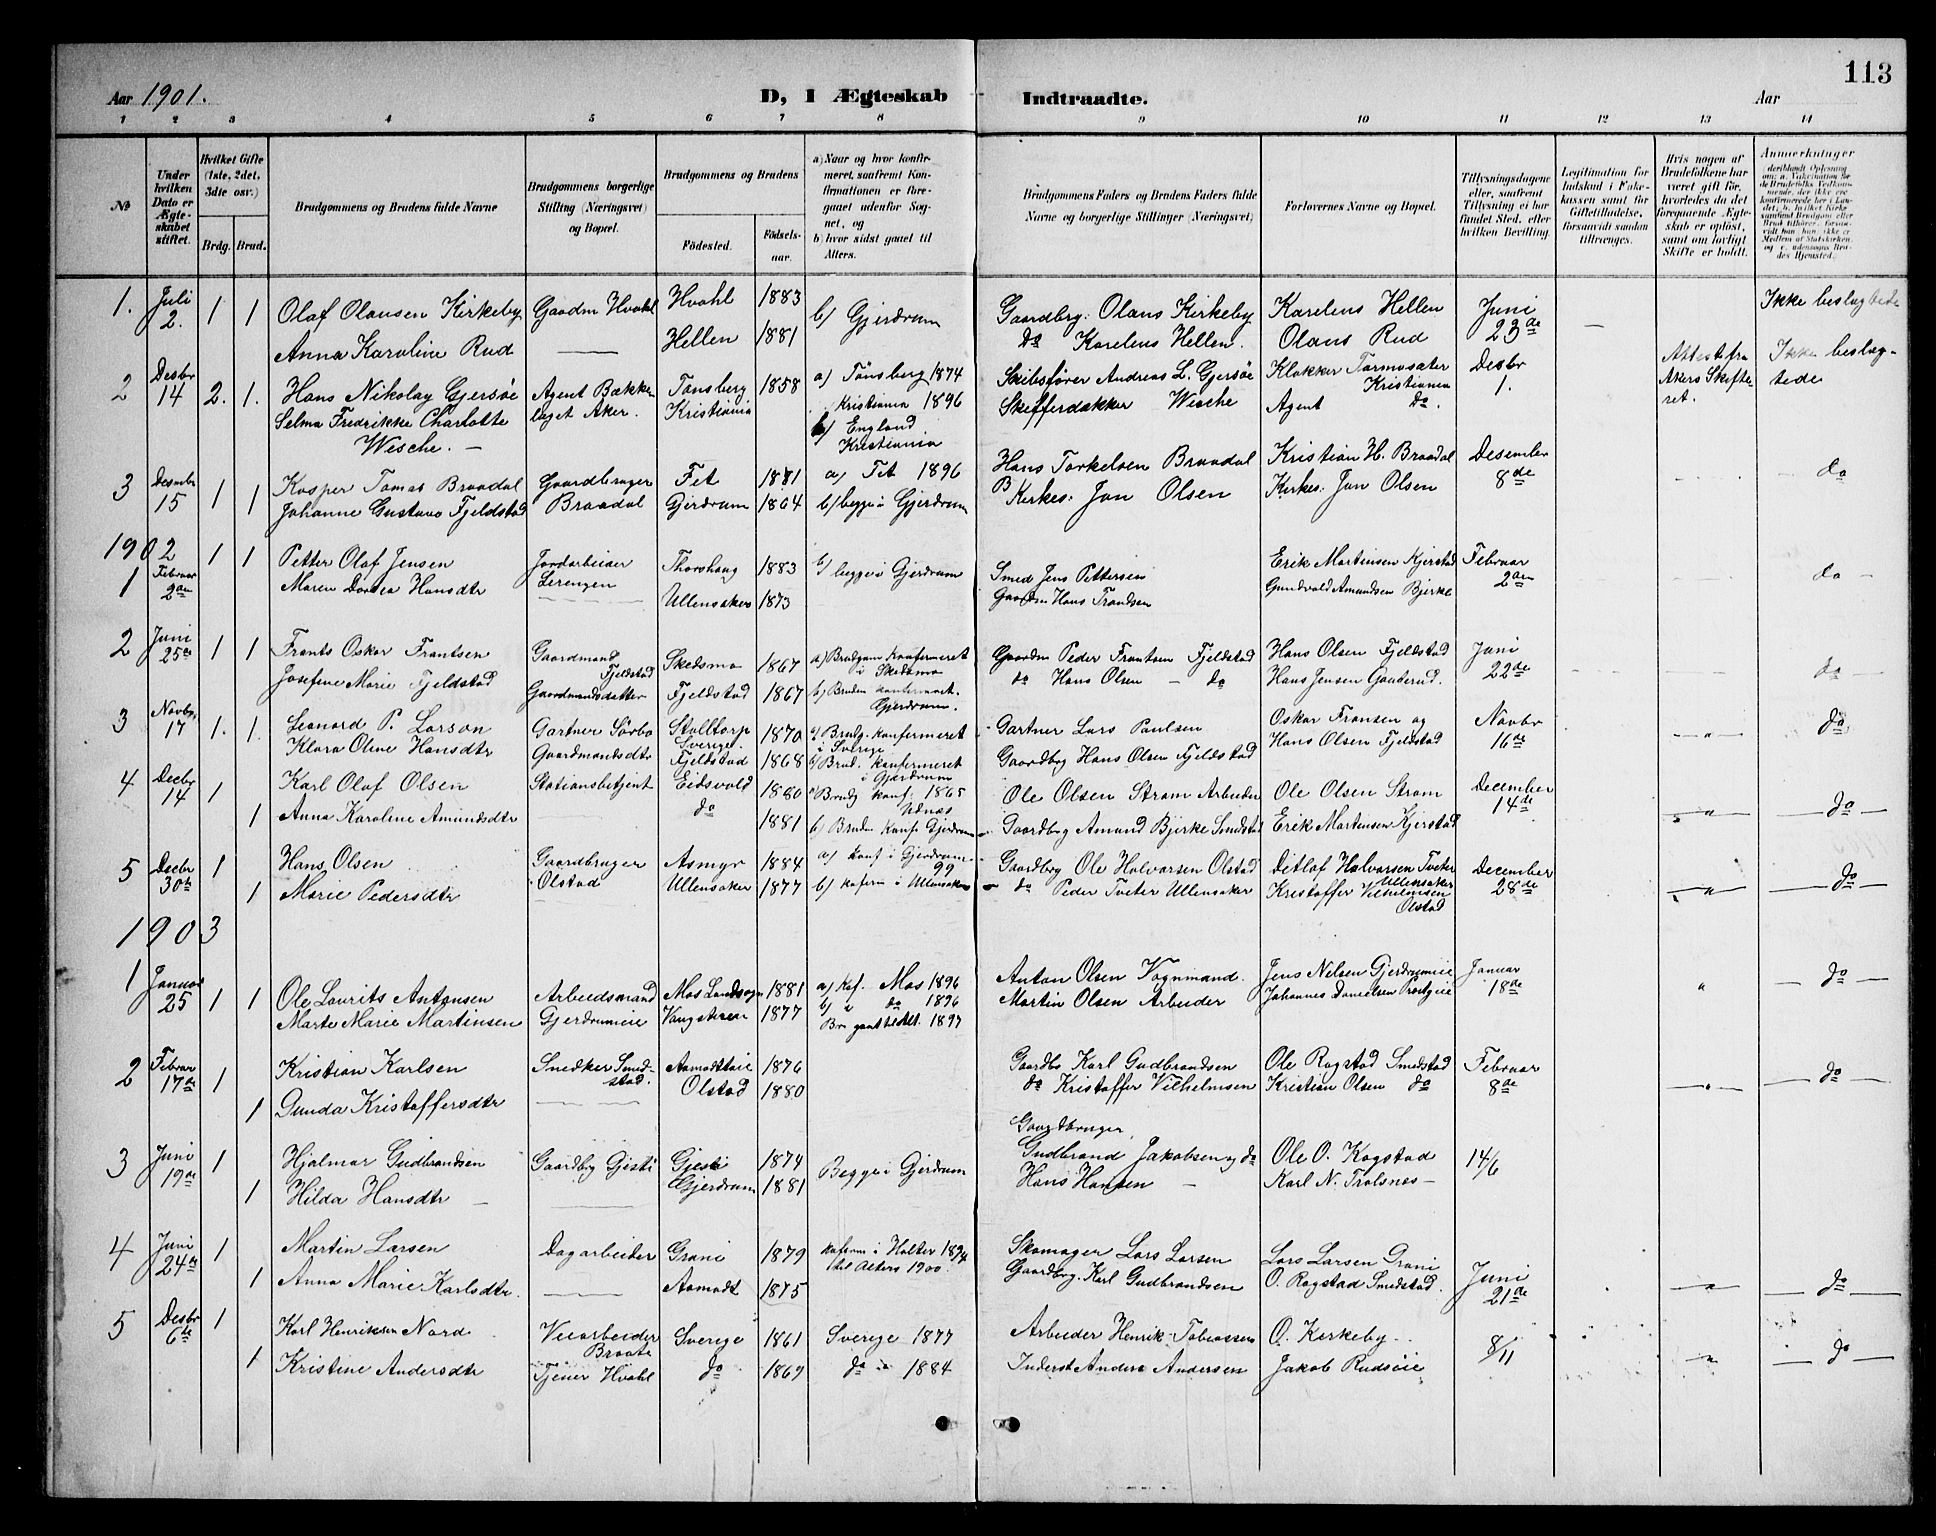 113
Aar 1901.
D, I Ægteskab Indtraadte.
Aar
1 2 3 4 5 6 7 8 9 10 11 12 13 14
№
Under hvilken Dato er Ægteskabet stiftet.
Hvilket Gifte (1ste, 2det, 3die osv.)
Brdg. Brud.
Brudgommens og Brudens fulde Navne
Brudgommens borgerlige Stilling (Næringsvei) og Bopæl.
Brudgommens og Brudens
Fødested. Fødselsaar.
a) Naar og hvor konfirmeret, saafremt Konfirmationen er foregaaet udenfor Sognet, og
b) hvor sidst gaaet til Alters.
Brudgommens Faders og Brudens Faders fulde Navne og borgerlige Stillinger (Næringsvei)
Forlovernes Navne og Bopæl.
Tillysningsdagene eller, saafremt Tillysning ei har fundet Sted, efter hvilken Bevilling.
Legitimation for Indskud i Enkekassen samt for Giftetilladelse, forsaavidt saadan tiltrænges.
Hvis nogen af Brudefolkene har været gift før, hvorledes da det foregaaende Ægteskab er opløst, samt om lovligt Skifte er holdt.
Anmerkninger
1. Juli 2. 1 1 Olaf Olausen Kirkeby Gaardm Hvahl Hvahl 1883 b) Gjerdrum Gaardbrg. Olaus Kirkeby Karelens Hellen Juni 23de — Ikke beslegtede
Anna Karoline Rud — Hellen 1881 do Karelens Hellen. Olaus Rud
2 Desbr 14 2. 1. Hans Nikolay Gjersøe Agent Bækkelaget Aker. Tønsberg 1858 a) Tønsberg 1874 Skibsfører Andreas L. Gjersøe Klokker Kristiania Desbr 1. Attest fra Akers Skifteret. Ikke beslegtede
Selma Fredrikke Charlotte Wesche. — Kristiania Kristiania 1896 Wesche Agent do.
b) England Kristiania
3 Desembr 15 1 1 Kasper Tomas Braadal Gaardbruger Braadal Fet 1881 a) Fet 1896 Hans Torkelsen Braadal Kristian H. Braadal Desember 8de do
Johanne Gustava Fjeldstad Gjerdrum 1864 b) begge i Gjerdrum Kirkes. Jon Olsen Kirkes. Jon Olsen
1902
1 Februar 2den 1 1 Petter Olaf Jensen Jordarbeider Lerengen Thorshaug 1883 b) begge i Gjerdrum Smed Jens Pettersen Erik Martinsen Kjerstad Februar 2den do
Maren Dortea Hansdtr — Ullensaker 1873 Gaardm Hans Trondsen Gundvald Amundsen Bjerke
2 Juni 25de 1 1 Frants Oskar Frantsen Gaardmand Fjeldstad Skedsmo 1867 a) Brudgom Konfermeret i Skedsmo Gaardm Peder Frantsen Fjeldstad Hans Olsen Fjeldstad Juni 22de do
Josefine Marie Fjeldstad Gaardmandsdatter Fjeldstad 1867 b) Bruden konfermeret. Gjerdrum. do Hans Olsen — do Hans Jensen Gauterud.
3 Novbr. 17 1. 1. Leonard P. Larson Gartner Sørbo Stolltorp Sverige. 1870 a) Brudg. konfermeret i Sverige Gartner Lars Paulsen Oskar Fransen og Novbr 16de " do
Klara Oline Hansdtr Gaardmandsdtr Fjeldstad 1868 b) Brud. konfermeret i Gjerdrum Gaardbrg Hans Olsen Fjeldstad Hans Olsen Fjeldstad
4 Decbr 14 1 Karl Olaf Olsen Stationsbetjent Eidsvold 1880 a) Brudg konf. Ole Olsen Strøm Arbeider Ole Olsen Strøm December 14de " do
1 Anna Karoline Amundsdtr do 1881 b) Bruden Konf Gjerdrum Gaardbrg Amund Bjerke Smdstad Erik Martensen Kjerstad
5 Decbr 30te 1 Hans Olsen Gaardbruger Olstad Asmyr 1884 a) konf i Gjerdrum 99 Gaardbrg Ole Halvorsen Olstad Ditlef Halvorsen Tveter Ullensaker December 28de " do
1 Marie Pedersdtr Ullensaker 1877 b) i Ullensaker do Peder Tveter Ullensaker Kristoffer Vilhelmsen Olstad
1903
1 Januar 25 1 1 Ole Laurits Antonsen Arbeidsmand Mos Landsogn 1881 a) Kof. Mos 1896 Anton Olsen Vognmand. Jens Nelsen Gjerdrumeie Januar 18de " do
Marte Marie Martinsen Gjerdrumeie 1877 b) i do 1896 Martin Olsen Arbeider Johannes Danielsen
1897
2 Februar 17de 1 Kristian Karlsen Snedker Smedstad. Aamodteie 1876 Gaardbr Karl Gudbrandsen Ole Rogstad Smedstad Februar 8de " do
1 Gunda Kristoffersdtr — Olstad 1880 do Kristoffer Vilhelmsen Kristian Olsen do
3 Juni 19de 1 Hjalmar Gudbrandsen Gaardbrg Gjesti Gjesti 1874 Begge i Gjerdrum Gaardbruger Gudbrand Jakobsen og do Ole O. Kogstad 14/6
1 Hilda Hansdtr — Gjerdrum 1881 Hans Hansen — Karl N. Trolsnes —
4 Juni 24de 1 Martin Larsen Dagarbeider Grani 1879 i Holter 1894 til Alters 1900. Skomager Lars Larsen Lars Larsen Grani Juni 21de " do
1 Anna Marie Karlsdtr. — Aamodt 1875 Gaardbrg. Karl Gudbrandsen O. Rogstad Smedstad.
5 Desbr 6te 1 Karl Henriksen Nord Veiarbeider Braate Sverige 1861 Sverige 1877 Arbeider Henrik Tobiassen O. Kirkeby 8/11 " do
1 Kristine Andersdtr Tjener Hvahl do 1869 do 1884 Inderst Anders Andersen Jakob Rudseie